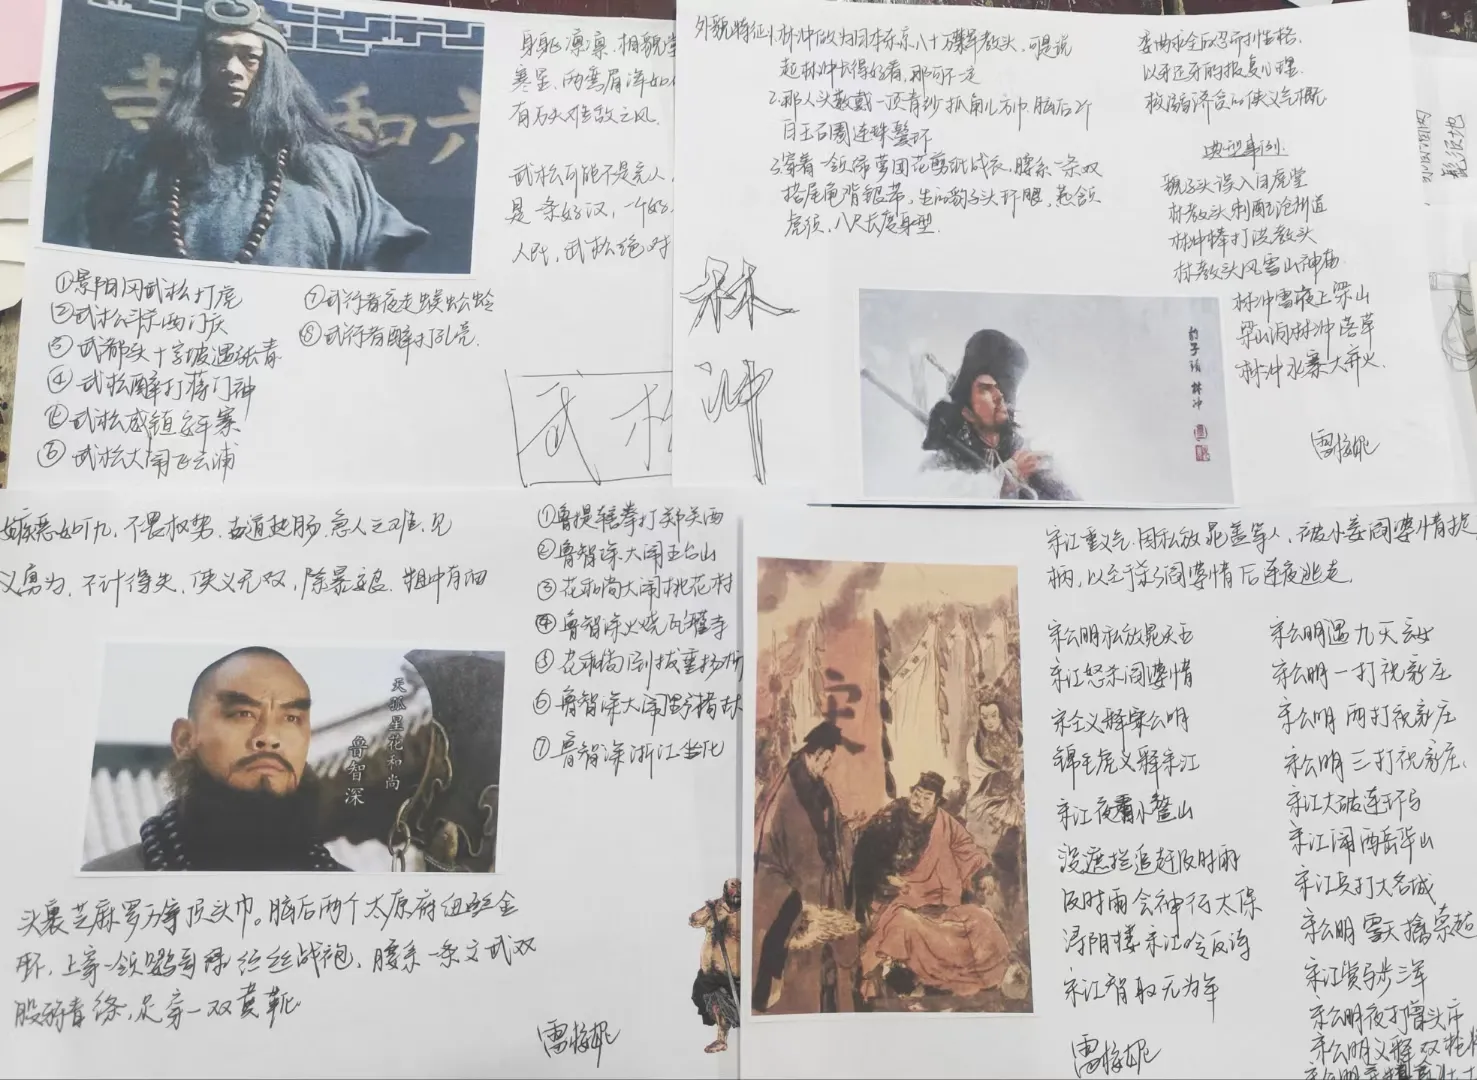 身躯凛凛,相貌堂
寒星,两弯眉浑如
有万夫难敌之风.
武松可能不是完人,
是一条好汉,一个好
人民,武松绝对
寺 和六
①景阳冈武松打虎
②武松斗杀西门庆
③武都头十字坡遇张青
④武松醉打蒋门神
武松威镇安平寨
⑥武松大闹飞云浦
⑦武行者夜走蜈蚣岭
⑧武行者醉打孔亮.
武松
外貌特征:林冲做为日本东京八十万禁军教头,可是说
起林冲长得好看,那可不是
2.那人头戴一顶青纱抓角儿头巾 脑后2个
白玉石圈连珠鬓环
3.穿着一领绿罗团花剪绒战衣,腰系一条双
搭尾龟背银带,生的豹子头环眼,燕颔
虎须,八尺长度身型.
委曲求全反忍耐性格.
以牙还牙的报复心理.
侠义气概
典型事例.
豹子头误入白虎堂
林教头刺配沧州道
林冲棒打洪教头
林教头风雪山神庙.
林冲雪夜上梁山
梁山泊林冲落草
林冲水寨大并火.
林冲
豹子頭 林冲
嫉恶如仇,不畏权势,古道热肠,急人之难,见
义勇为,不计得失,侠义无双,除暴安良,粗中有细
天孤星花和尚
鲁智深
①鲁提辖拳打郑关西
②鲁智深大闹五台山
③花和尚大闹桃花村
④鲁智深火烧瓦罐寺
⑤花和尚倒拔垂杨柳
⑥鲁智深大闹野猪林
⑦鲁智深浙江坐化
头裹芝麻罗万字顶头巾。脑后两个太原府纽丝金
环,上穿一领鹦哥绿纻丝战袍,腰系一条文武双
股鸦青绦,足穿一双黄靴
宋江重义气.因私放晁盖等人,被小妾阎婆惜捉
柄,以至于杀了阎婆惜后连夜逃走.
宋
宋公明私放晁天王
宋江怒杀阎婆惜
宋全义释宋公明
锦毛虎义释宋江
宋江夜看小鳌山
没遮拦追赶及时雨
及时雨会神行太保
浔阳楼宋江吟反诗
宋江智取无为军
宋公明遇九天玄女
宋公明一打祝家庄
宋公明两打祝家庄
宋公明三打祝家庄.
宋江大破连环马
宋江闹西岳华山
宋江兵打大名城
宋公明雪天擒索超
宋江赏马步三军
宋公明夜打曾头市
宋公明义释双枪